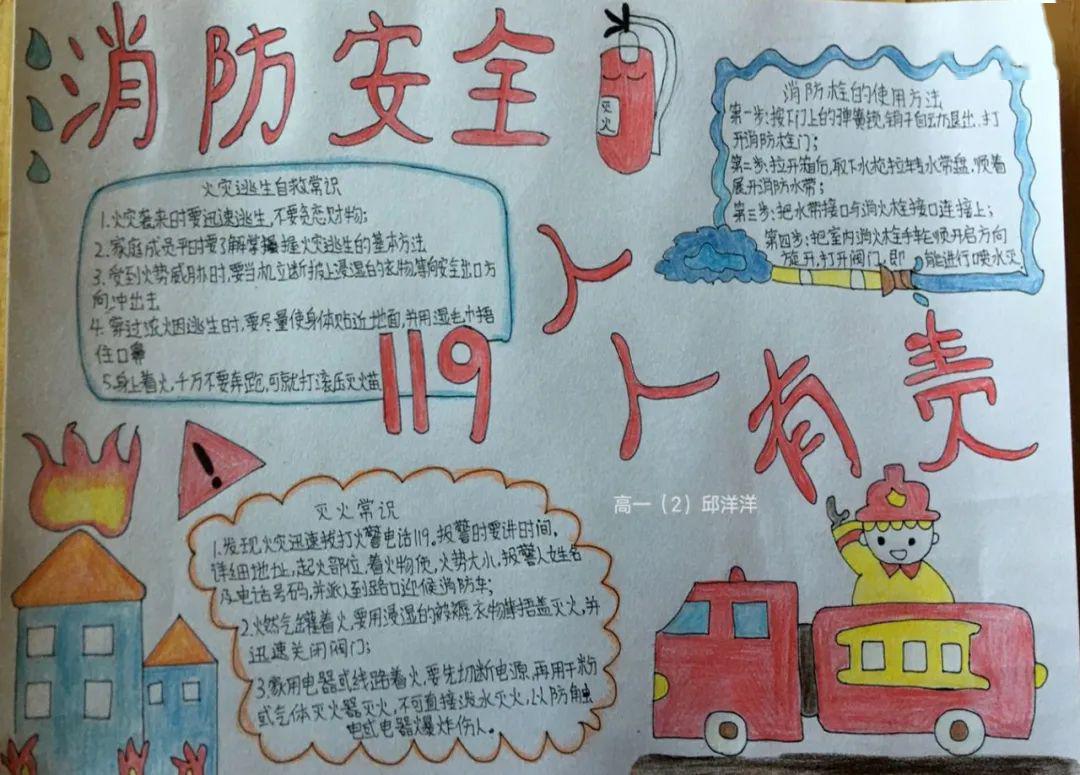 消防安全
灭火
火灾逃生自救常识
1.火灾袭来时要迅速逃生,不要贪恋财物;
2.家庭成员平时要了解掌握火灾逃生的基本方法
3.受到火势威胁时,要当机立断披上浸湿的衣物等向安全出口方
向冲出去
4.穿过浓烟逃生时,要尽量使身体贴近地面,并用湿毛巾捂
住口鼻
5.身上着火,千万不要奔跑,可就打滚压灭火苗
119
消防栓的使用方法
第一步:按下门上的弹簧锁,销子自动退出,打
开消防栓门;
第二步:拉开箱后,取下水枪拉转水带盘,顺着
展开消防水带;
第三步:把水带接口与消火栓接口连接上;
第四步:把室内消火栓手轮顺开启方向
旋开,打开阀门,即 能进行喷水灭
人人有责
高一(2)邱洋洋
灭火常识
1.发现火灾迅速拨打火警电话119,报警时要讲时间,
详细地址,起火部位,着火物质,火势大小,报警人姓名
及电话号码,并派人到路口迎候消防车;
2.燃气罐着火,要用浸湿的被褥,衣物捂盖灭火,并
迅速关闭阀门;
3.家用电器或线路着火,要先切断电源,再用干粉
或气体灭火器灭火,不可直接泼水灭火,以防触
电或电器爆炸伤人。